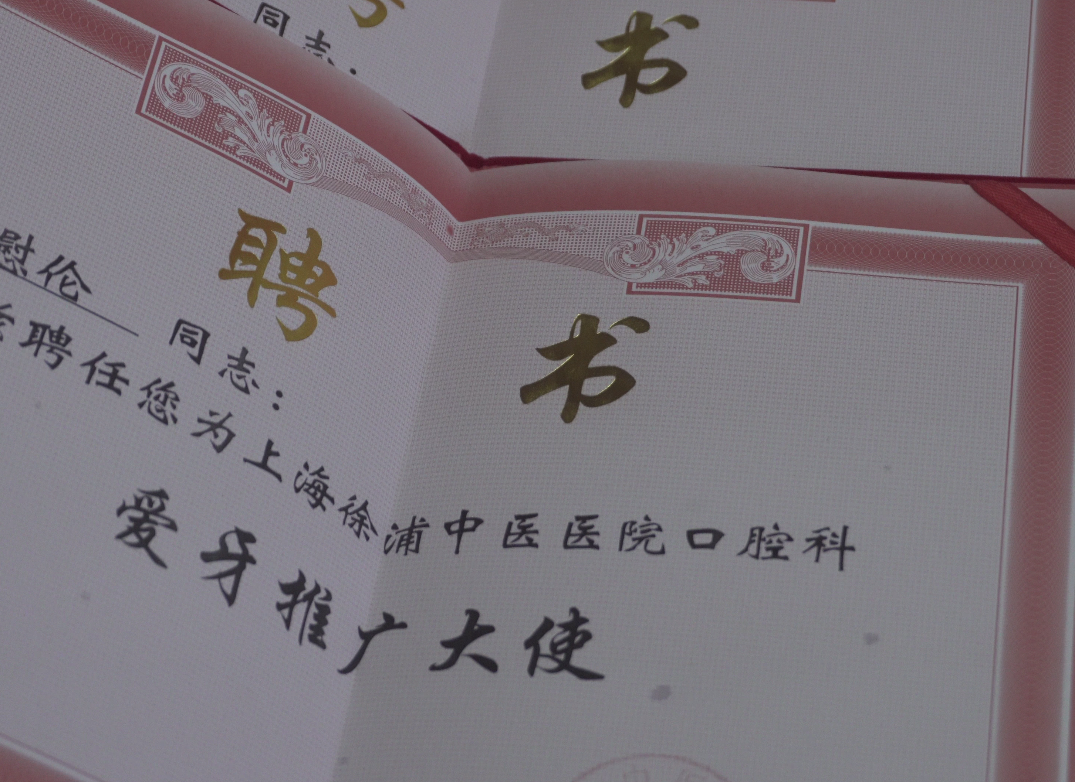 书
同志：
聘书
慰伦 同志：
聘任您为上海徐浦中医医院口腔科
爱牙推广大使